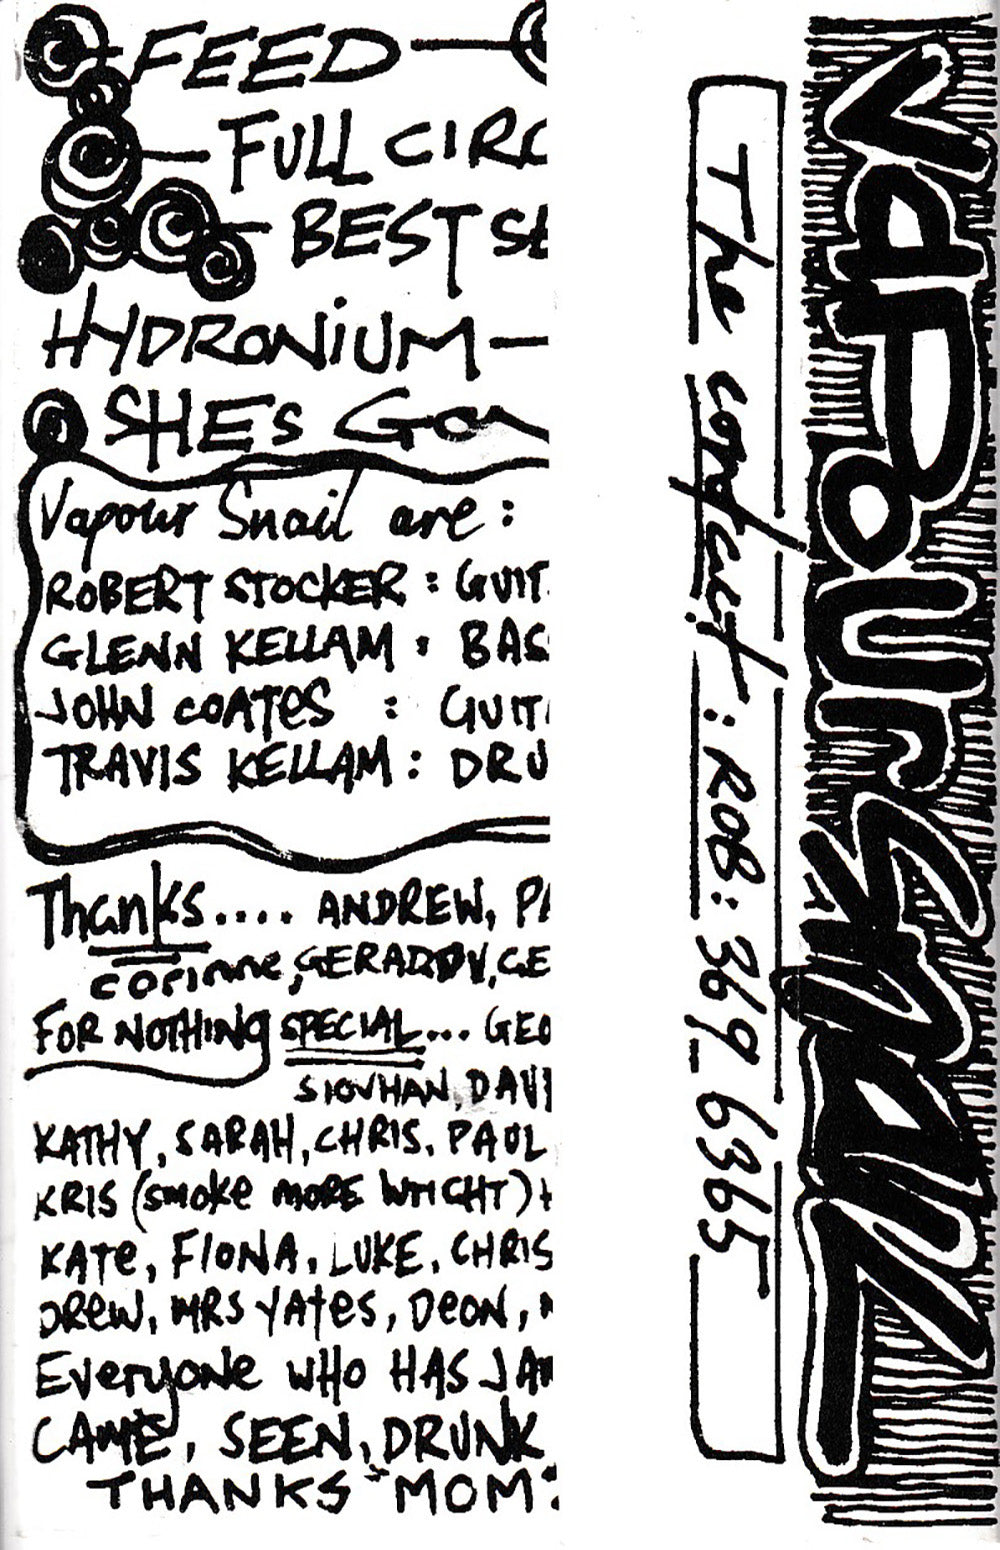 FEED
FULL CIRC
BEST SE
HYDRONIUM
SHEs Gon
Vapour Snail are:
ROBERT STOCKER : GUIT
GLENN KELLAM : BAS
JOHN COATES : GUIT
TRAVIS KELLAM : DRU
Thanks.... ANDREW, PA
corinne, GERARD, CE
FOR NOTHING SPECIAL... GEO
SIOVHAN, DAVI
KATHY, SARAH, CHRIS, PAUL
KRIS (smoke MORE WRIGHT)
KATe, FIONA, LUKE, CHRIS
DREW, MRS YATes, DeON,
Everyone WHO HAS JAM
CAME, SEEN, DRUNK
THANKS "MOM"
The contact : ROB: 369_6365
VaPOUr SNaIL